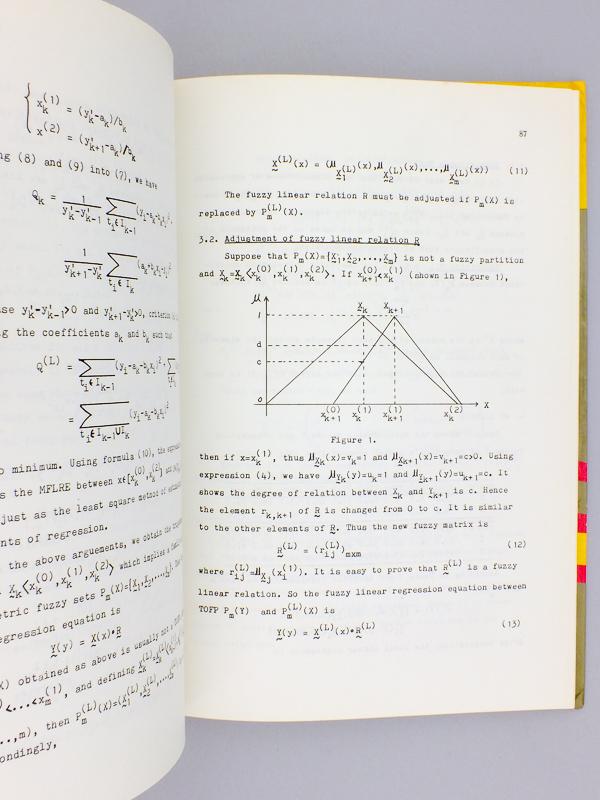 x_k^(1) = (y'_k-a_k)/b_k
x^(2) = (y'_{k+1}-a_k)/b_k
ng (8) and (9) into (7), we have
Q_k = 1/(y'_k-y'_{k-1}) ∑_{t_i∈I_{k-1}} (y_i-a_k-b_kx_i)^2
1/(y'_{k+1}-y'_k) ∑_{t_i∈I_k} (a_k+b_kx_i-y_i)^2
use y'_k-y'_{k-1}>0 and y'_{k+1}-y'_k>0,
ng the coefficients a_k and b_k such that
Q^(L) = ∑_{t_i∈I_{k-1}} (y_i-a_k-b_kx_i)^2+
= ∑_{t_i∈I_{k-1}UI_k} (y_i-a_k-b_kx_i)^2
o minimum. Using formula (10), the
s the MFLRE between x∈[x_k^(0),x_k^(2)] and
just as the least square method of
nts of regression.
the above arguements, we obtain the
X_k <x_k^(0),x_k^(1),x_k^(2)> which implies a
etric fuzzy sets P_m(X)={X_1,X_2,...,X_m}.
egression equation is
Y(y) = X(x)•R
X) obtained as above is usually not a
)<...<x_m^(1), and defining
..,m), then P_m^(L)(X)={X_1^(L),X_2^(L),...,
ondingly,
87
X^(L)(x) = (μ_{X_1^(L)}(x),μ_{X_2^(L)}(x),...,μ_{X_m^(L)}(x)) (11)
The fuzzy linear relation R must be adjusted if P_m(X) is
replaced by P_m^(L)(X).
3.2. Adjustment of fuzzy linear relation R
Suppose that P_m(X)={X_1,X_2,...,X_m} is not a fuzzy partition
and X_k=X_k<x_k^(0),x_k^(1),x_k^(2)>. If x_{k+1}^(0)<x_k^(1) (shown in Figure 1),
μ
X_k X_{k+1}
1
d
c
0
x_{k+1}^(0) x_k^(1) x_{k+1}^(1) x_k^(2) X
Figure 1.
then if x=x_k^(1), thus μ_{X_k}(x)=v_k=1 and μ_{X_{k+1}}(x)=v_{k+1}=c>0. Using
expression (4), we have μ_{Y_k}(y)=u_k=1 and μ_{Y_{k+1}}(y)=u_{k+1}=c. It
shows the degree of relation between X_k and Y_{k+1} is c. Hence
the element r_{k,k+1} of R is changed from 0 to c. It is similar
to the other elements of R. Thus the new fuzzy matrix is
R^(L) = (r_{ij}^(L))_{mxm} (12)
where r_{ij}^(L)=μ_{X_j}(x_i^(1)). It is easy to prove that R^(L) is a fuzzy
linear relation. So the fuzzy linear regression equation between
TOFP P_m(Y) and P_m^(L)(X) is
Y(y) = X^(L)(x)•R^(L) (13)